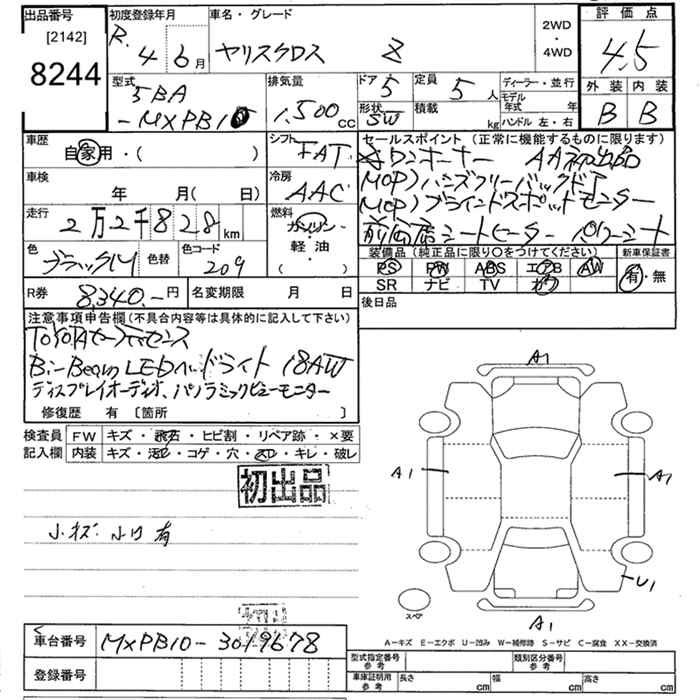 出品番号
[2142]
8244
初度登録年月
R. 4 6月
車名・グレード
ヤリスクロス Z
2WD
・
4WD
評価点
4.5
外装 内装
B B
型式
5BA
-MXPB10
排気量
1,500cc
ドア 5
形状 SW
定員 5人
積載 kg
ディーラー・並行
モデル年式 年
ハンドル 左・右
車歴
自家用・( )
シフト
FAT
セールスポイント (正常に機能するものに限ります)
ワンオーナー AA初出品
MOP)ハンズフリーバックドア
MOP)ブラインドスポットモニター
前席シートヒーター パワーシート
車検
年 月( 日)
冷房
AAC
走行
2万2千828km
燃料
ガソリン
軽油・
( )
色
ブラックM
色替
色コード
209
装備品(純正品に限り○をつけてください)
新車保証書
PS PW ABS エアB AW
SR ナビ TV カワ
有・無
R券 8,340.-円
名変期限 月 日
後日品
注意事項申告欄(不具合内容等は具体的に記入して下さい)
TOYOTAセーフティセンス
Bi-Beam LEDヘッドライト 18AW
ディスプレイオーディオ、パノラミックビューモニター
修復歴 有 〔箇所 〕
検査員
記入欄
FW キズ・飛石・ヒビ割・リペア跡・×要
内装 キズ・汚レ・コゲ・穴・スレ・キレ・破レ
初出品
小キズ 小凹 有
A1
A1
A1
U1
A1
スペア
A-キズ E-エクボ U-凹み W-補修跡 S-サビ C-腐食 XX-交換済
車台番号 MXPB10-3019678
登録番号
型式指定番号
参考
類別区分番号
参考
車庫証明用
参考
長さ cm
幅 cm
高さ cm